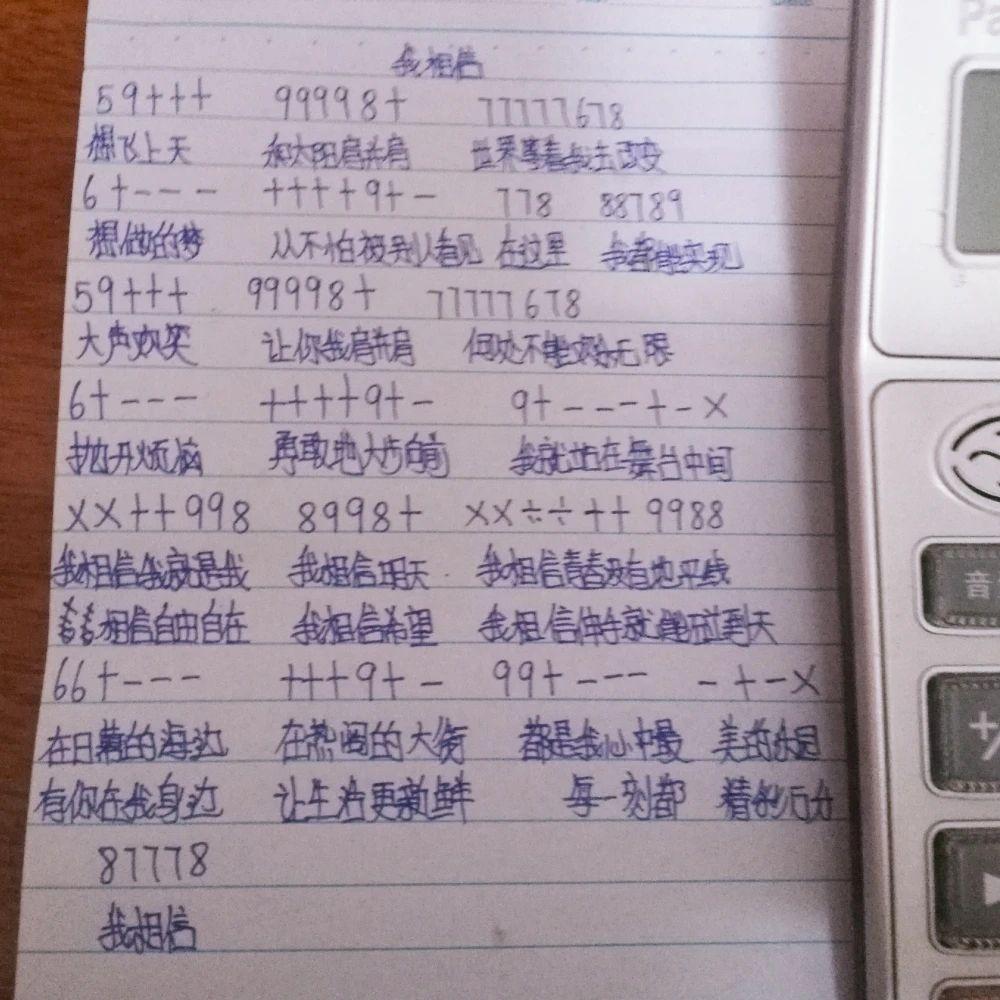 我相信
59+++ 99998+ 77777678
想飞上天 和太阳肩并肩 世界等着我去改变
6+--- ++++9+- 778 88789
想做的梦 从不怕被别人看见 在这里 我都能实现
59+++ 99998+ 77777678
大声欢笑 让你我肩并肩 何处不能欢乐无限
6+--- ++++9+- 9+---+-×
抛开烦恼 勇敢地大步向前 我就站在舞台中间
××++998 8998+ ××÷÷++9988
我相信我就是我 我相信明天 我相信青春没有地平线
相信自由自在 我相信希望 我相信伸手就能碰到天
66+--- +++9+- 99+--- -+-×
在日落的海边 在热闹的大街 都是我心中最 美的乐园
有你在我身边 让生活更新鲜 每一刻都 精彩万分
87778
我相信
音
+/